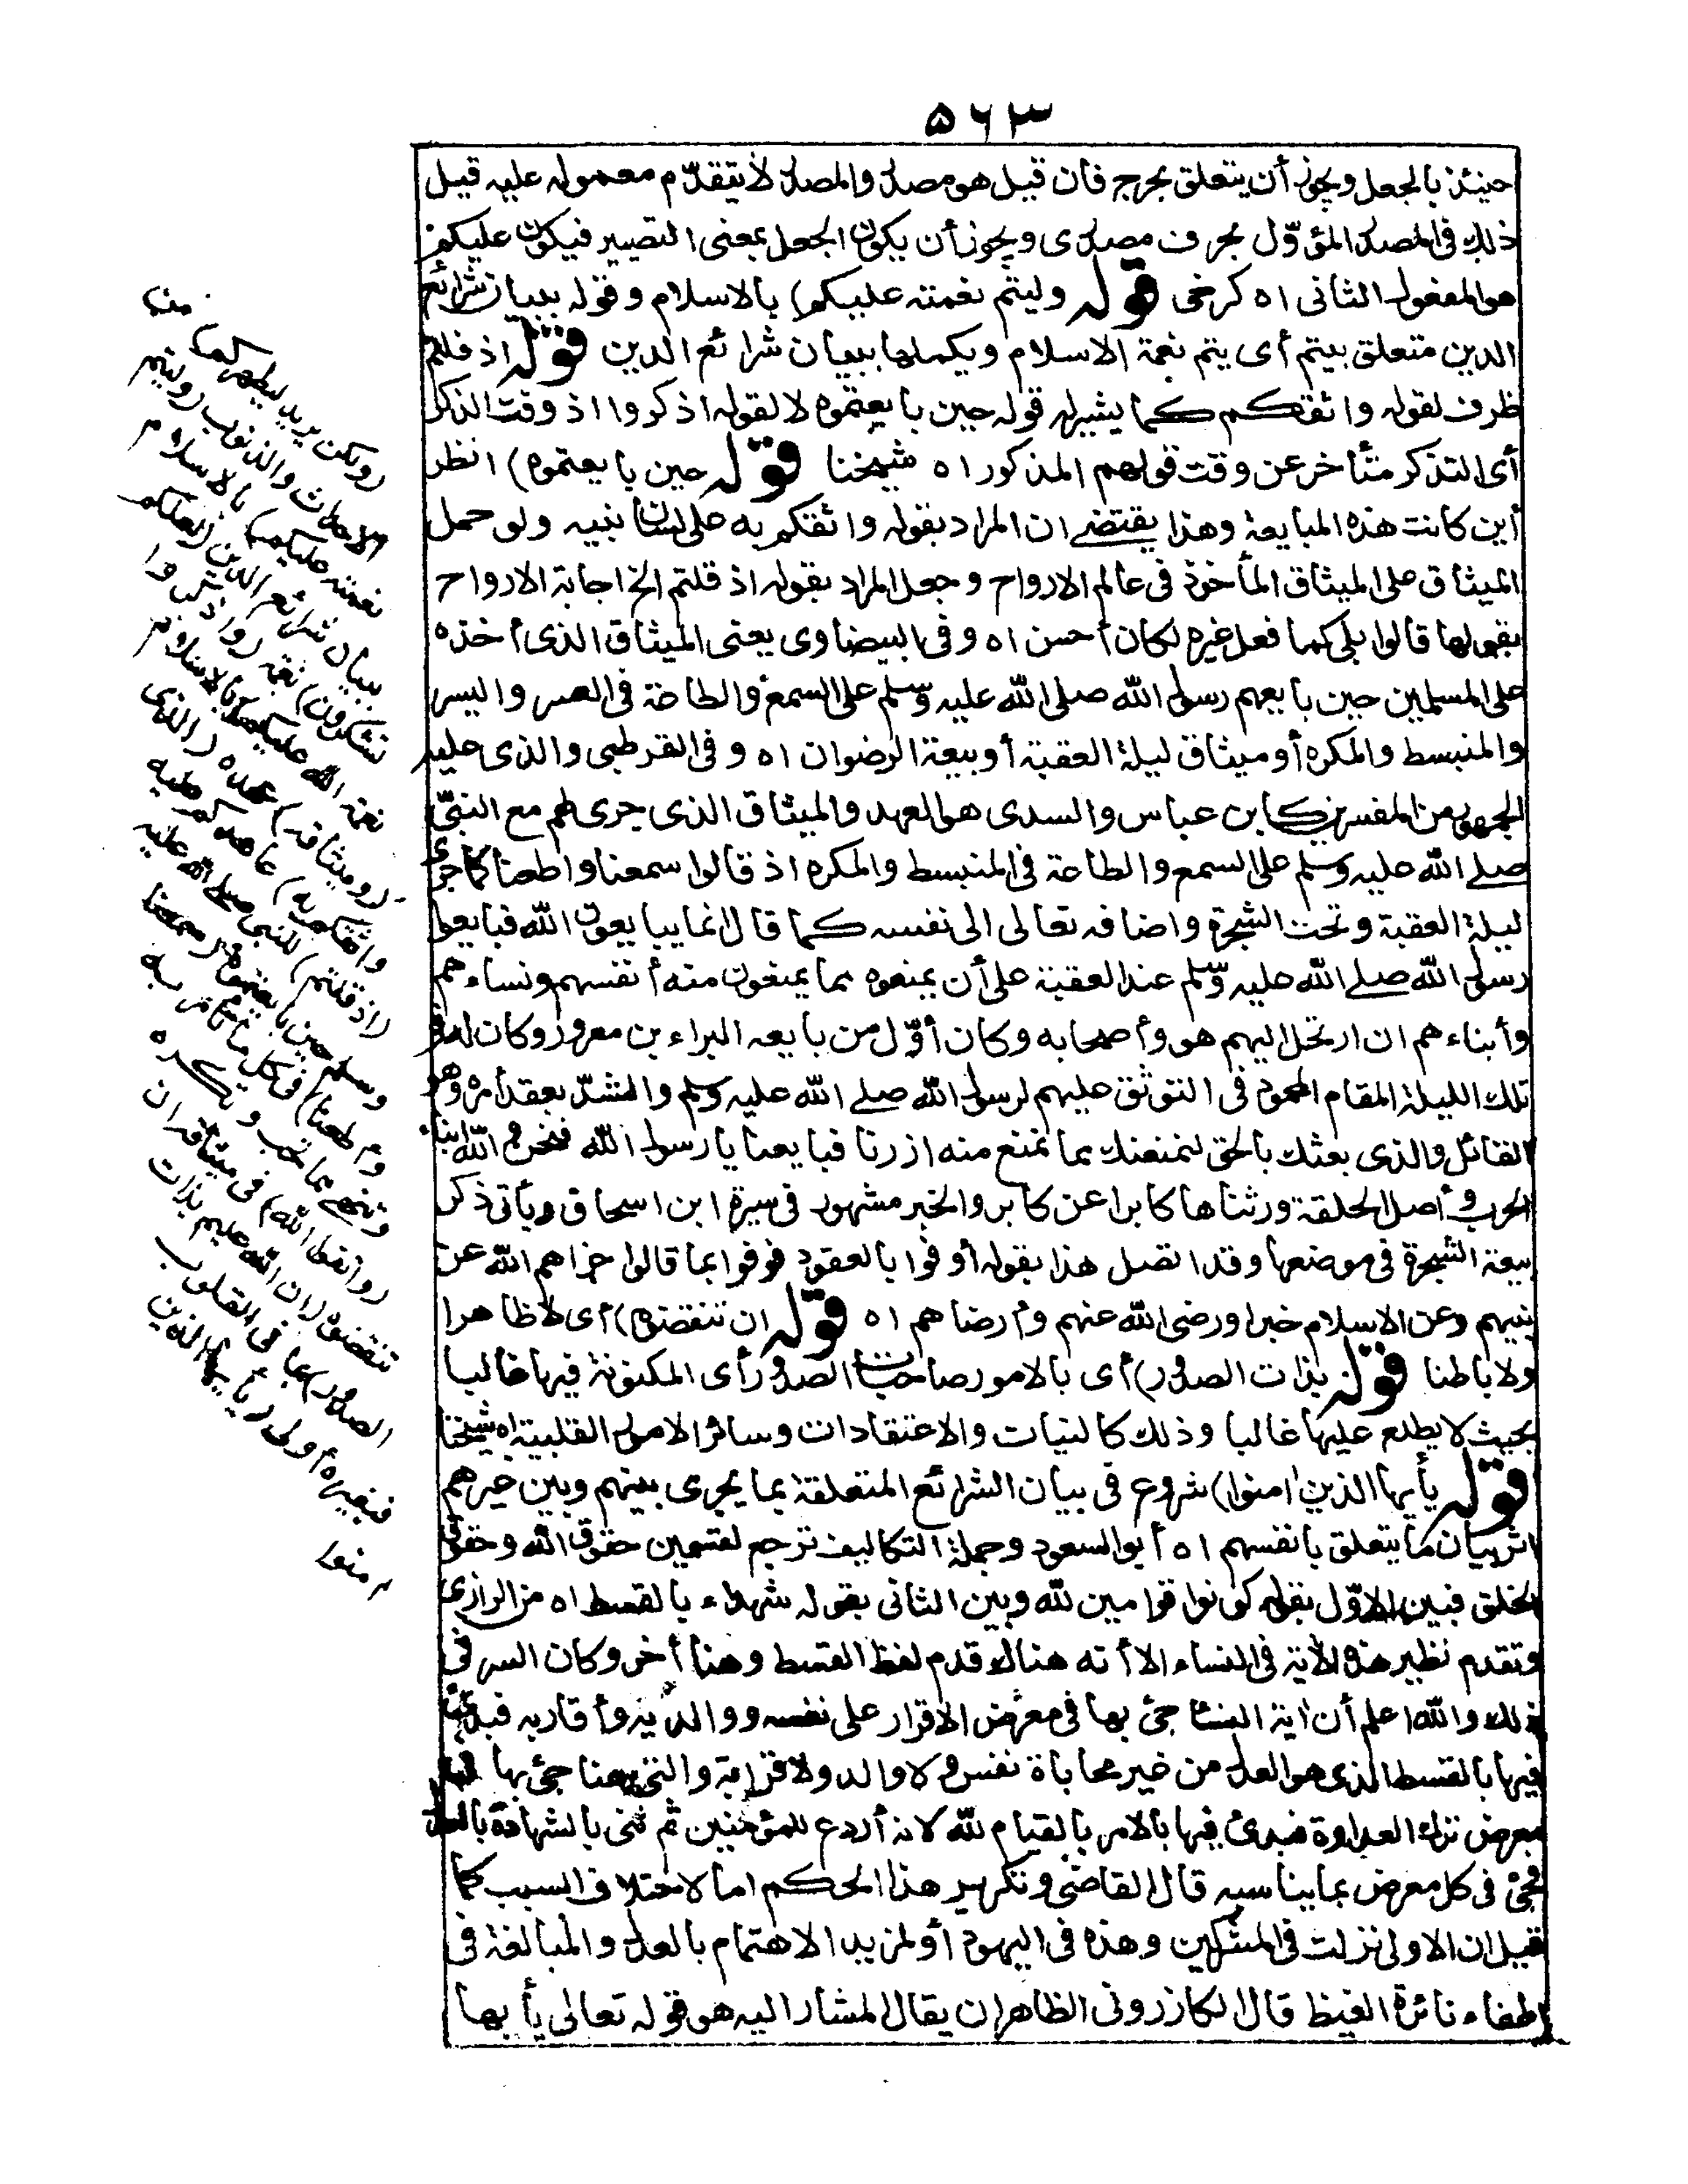 ۵۶۳
حينئذ بالجعل ويجوز أن يتعلق بحرج فان قيل هو مصدر والمصدر لا يتقدّم معموله عليه قيل
ذلك فى المصدر المؤوّل بحرف مصدرى ويجوز أن يكون الجعل بمعنى التصيير فيكون عليكم
هو المفعول الثانى اه كرخى قوله وليتم نعمته عليكم) بالاسلام وقوله ببيان شرائع
الدين متعلق بيتم أى يتم نعمة الاسلام ويكملها ببيان شرائع الدين قوله اذ قلتم
ظرف لقوله واثقكم كما يشير له قوله حين بايعتموه لا لقوله اذكروا اذ وقت الذكر
أى التذكر متأخر عن وقت قولهم المذكور اه شيخنا قوله حين بايعتموه) انظر
أين كانت هذه المبايعة وهذا يقتضى ان المراد بقوله واثقكم به على لسان نبيه ولو حمل
الميثاق على الميثاق المأخوذ فى عالم الارواح وجعل المراد بقوله اذ قلتم الخ اجابة الارواح
بقولها قالوا بلى كما فعل غيره لكان أحسن اه وفى البيضاوى يعنى الميثاق الذى أخذه
على المسلمين حين بايعهم رسول الله صلى الله عليه وسلم على السمع والطاعة فى العسر واليسر
والمنبسط والمكره أو ميثاق ليلة العقبة أو بيعة الرضوان اه وفى القرطبى والذى عليه
الجمهور من المفسرين كابن عباس والسدى هو العهد والميثاق الذى جرى لهم مع النبىّ
صلى الله عليه وسلم على السمع والطاعة فى المنبسط والمكره اذ قالوا سمعنا واطعنا كما جرى
ليلة العقبة وتحت الشجرة واضافه تعالى الى نفسه كما قال انما يبايعون الله فبايعوا
رسول الله صلى الله عليه وسلم عند العقبة على أن يمنعوه مما يمنعون منه أنفسهم ونساءهم
وأبناءهم ان ارتحل اليهم هو وأصحابه وكان أوّل من بايعه البراء بن معرور وكان له فى
تلك الليلة المقام المحمود فى التوثق عليهم لرسول الله صلى الله عليه وسلم والشدّ بعقد أمره وهو
القائل والذى بعثك بالحق لنمنعنك مما نمنع منه ازرنا فبايعنا يا رسول الله فنحن والله ابناء
الحرب وأصل الحلقة ورثناها كابرا عن كابر والخبر مشهور فى سيرة ابن اسحاق ويأتى ذكر
بيعة الشجرة فى موضعها وقد اتصل هذا بقوله أوفوا بالعقود فوفوا بما قالوا جزاهم الله عن
نبيهم وعن الاسلام خيرا ورضى الله عنهم وأرضاهم اه قوله ان تنقضوه) أى لا ظاهرا
ولا باطنا قوله بذات الصدور) أى بالامور صاحبات الصدور أى المكنونة فيها غالبا
بحيث لا يطلع عليها غالبا وذلك كالنيات والاعتقادات وسائر الامور القلبية اه شيخنا
قوله يأيها الذين امنوا) شروع فى بيان الشرائع المتعلقة بما يجرى بينهم وبين غيرهم
اثر بيان ما يتعلق بأنفسهم اه أبو السعود وجملة التكاليف ترجع لقسمين حقوق الله وحقوق
الخلق فبين الاوّل بقوله كونوا قوامين لله وبين الثانى بقوله شهداء بالقسط اه من الرازى
وتقدم نظير هذه الآية فى النساء الا أنه هناك قدم لفظ القسط وهنا أخر وكان السر فى
ذلك والله اعلم أن اية النساء جئ بها فى معرض الاقرار على نفسه ووالديه وأقاربه فبدئ
فيها بالقسط الذى هو العدل من غير محاباة نفس ولا والد ولا قرابة والتى هنا جئ بها
بمعرض ترك العداوة فبدئ فيها بالامر بالقيام لله لانه أردع للمؤمنين ثم ثنى بالشهادة بالعدل
فجئ فى كل معرض بما يناسبه قال القاضى وتكرير هذا الحكم اما لاختلاف السبب كما
قيل ان الاولى نزلت فى المشركين وهذه فى اليهود أو لمزيد الاهتمام بالعدل والمبالغة فى
اطفاء نائرة الغيظ قال الكازرونى الظاهر ان يقال المشار اليه هو قوله تعالى يأيها
روكن يريد ليطهركم) من
الاحداث والذنوب (وليتم
نعمته عليكم) بالاسلام
ببيان شرائع الدين (لعلكم
تشكرون) نعمه (واذكروا
نعمة الله عليكم) بالاسلام
(وميثاقه) عهده (الذى
واثقكم به) عاهدكم عليه
(اذ قلتم) للنبى صلى الله عليه
وسلم حين بايعتموه (سمعنا
وأطعنا) فى كل ما تأمر به
وتنهى مما نحب ونكره
(واتقوا الله) فى ميثاقه ان
تنقضوه (ان الله عليم بذات
الصدور) بما فى القلوب
فبغيره أولى (يأيها الذين
امنوا